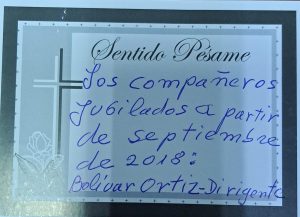 Sentido Pésame
Los compañeros
Jubilados a partir
de septiembre
de 2018:
Bolívar Ortiz-Dirigente